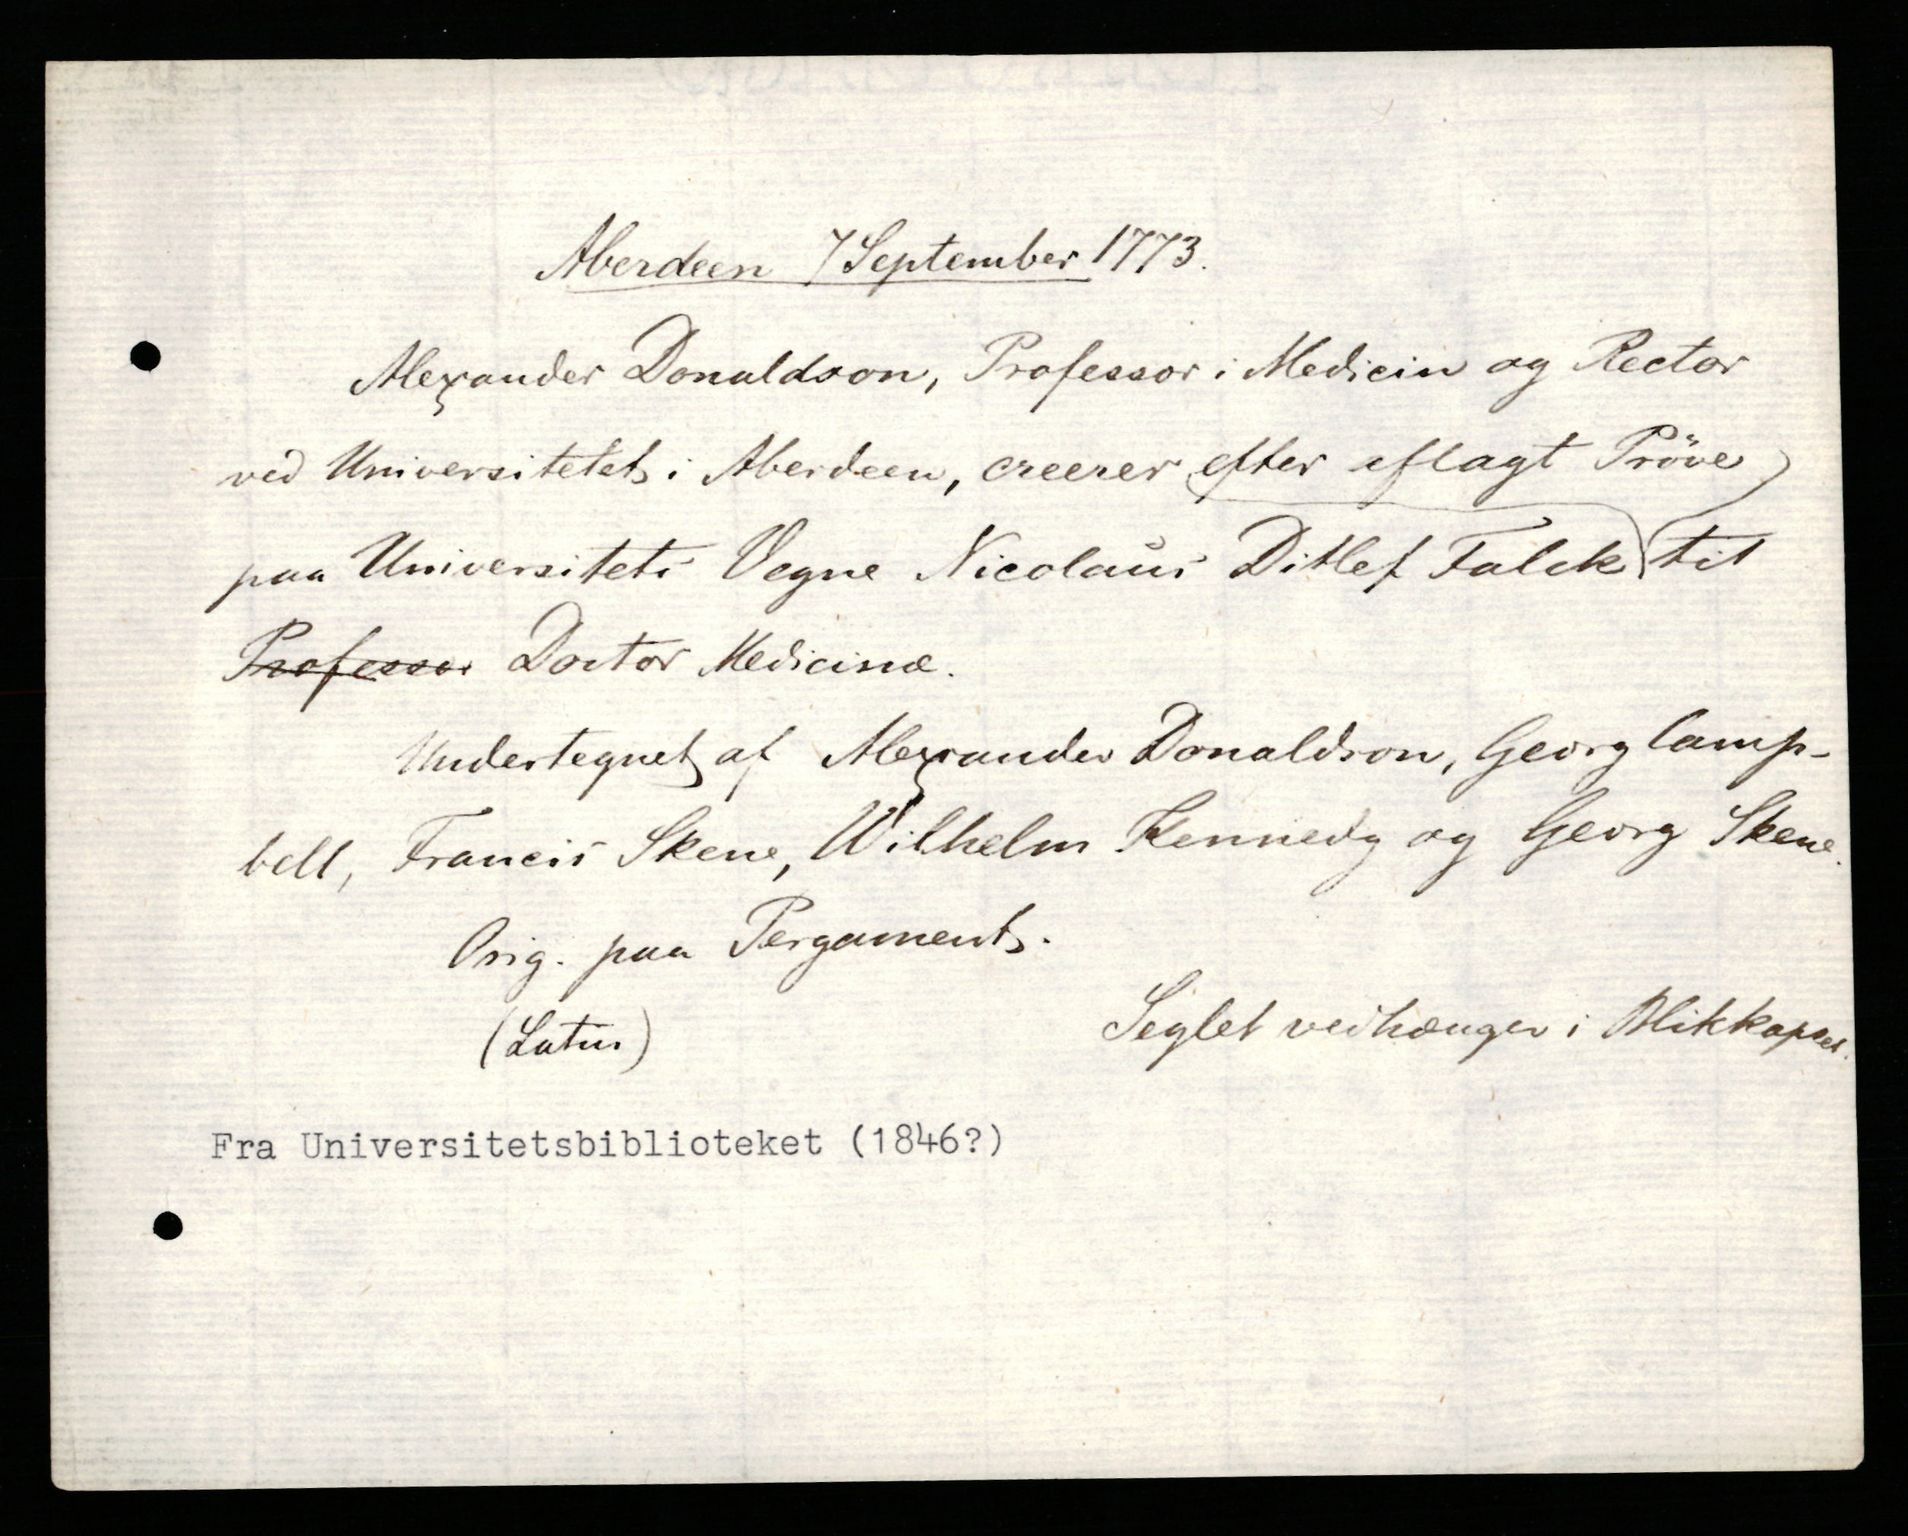 Aberdeen 7 September 1773.
Alexander Donaldson, Professor i Medicin og Rector
ved Universitetet i Aberdeen, creerer efter aflagt Pröve
paa Universitets Vegne Nicolaus Ditlef Falck til
Professor Doctor Medicinæ.
Undertegnet af Alexander Donaldson, Georg Camp-
bell, Francis Skene, Wilhelm Kennedy og Georg Skene.
Orig. paa Pergament.
(Latin)
Seglet vedhænger i Blikkapsel.
Fra Universitetsbiblioteket (1846?)